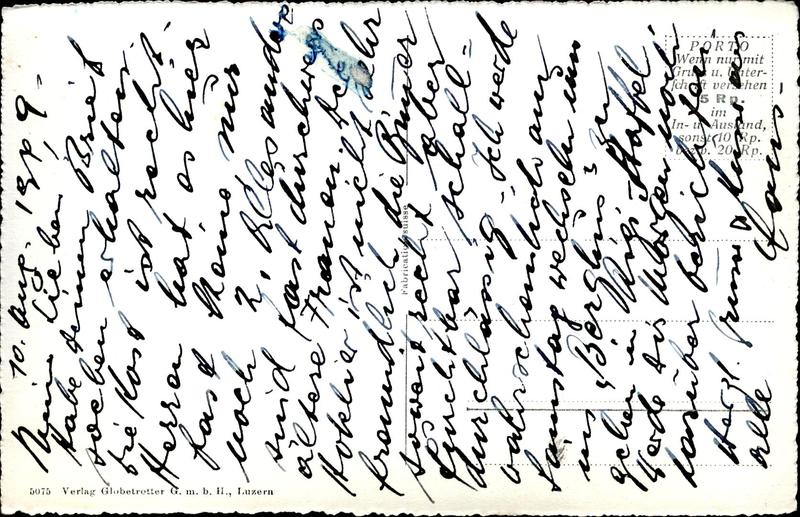 10. Aug. 1949 -
Mein Lieben!
Habe Deinen Brief
soeben erhalten.
Die Kost ist recht.
Herren hat es hier
fast keine nur
noch 2, alles andere
sind fast durchwegs
ältere Frauen. Der
Hotelier ist nicht sehr
freundlich die Zimmer
soweit recht aber
furchtbar schall-
durchlässig. - Ich werde
wahrscheinlich am
Samstag wechseln um
ins "Berghus" zu
gehen in Rigi-Staffel.
Werde dir Morgen noch
darüber berichten!
Herzl. Grüsse & Kuss an
alle
Hans -
PORTO
Wenn nur mit
Gruss u. Unter-
schrift versehen
5 Rp.
im
In- u. Ausland,
sonst 10 Rp.
bezw. 20 Rp.
Fabrication suisse
5075 Verlag Globetrotter G. m. b. H., Luzern